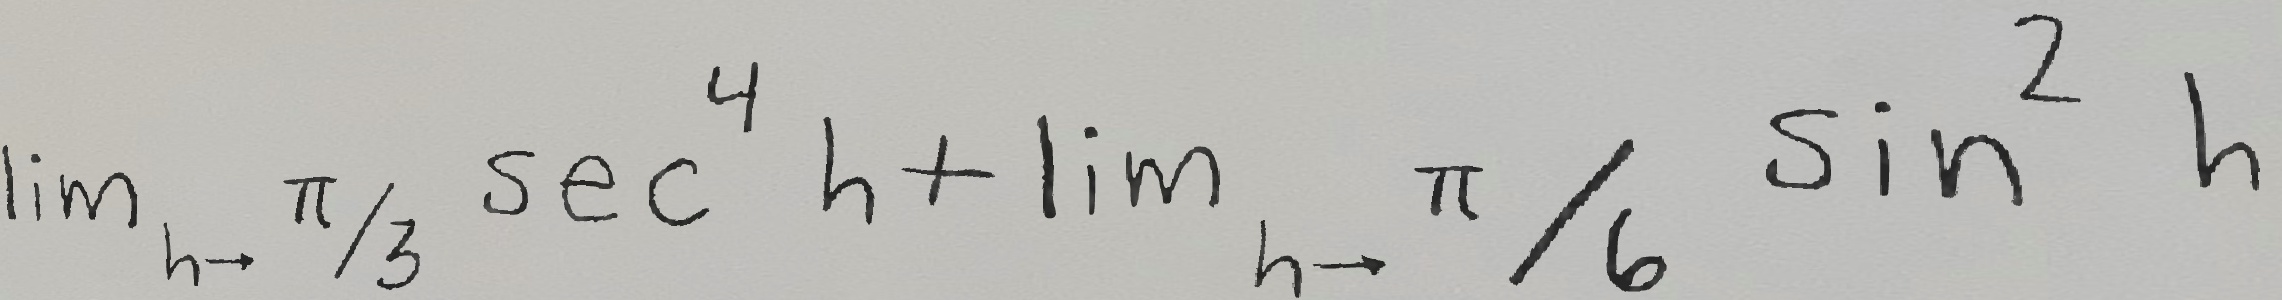 lim_{h→ π/3} sec^4 h + lim_{h→ π/6} sin^2 h